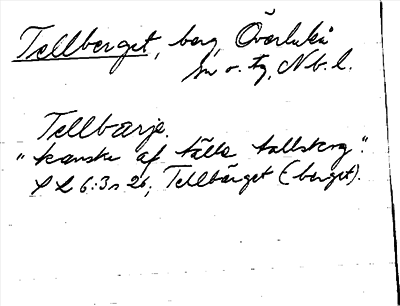 Tellberget, berg, Överluleå
sn o. tg, Nb. l.
Tellbærje.
"kanske af tälle tallskog".
SL 6:3 s 26; Tellbärget (berget).